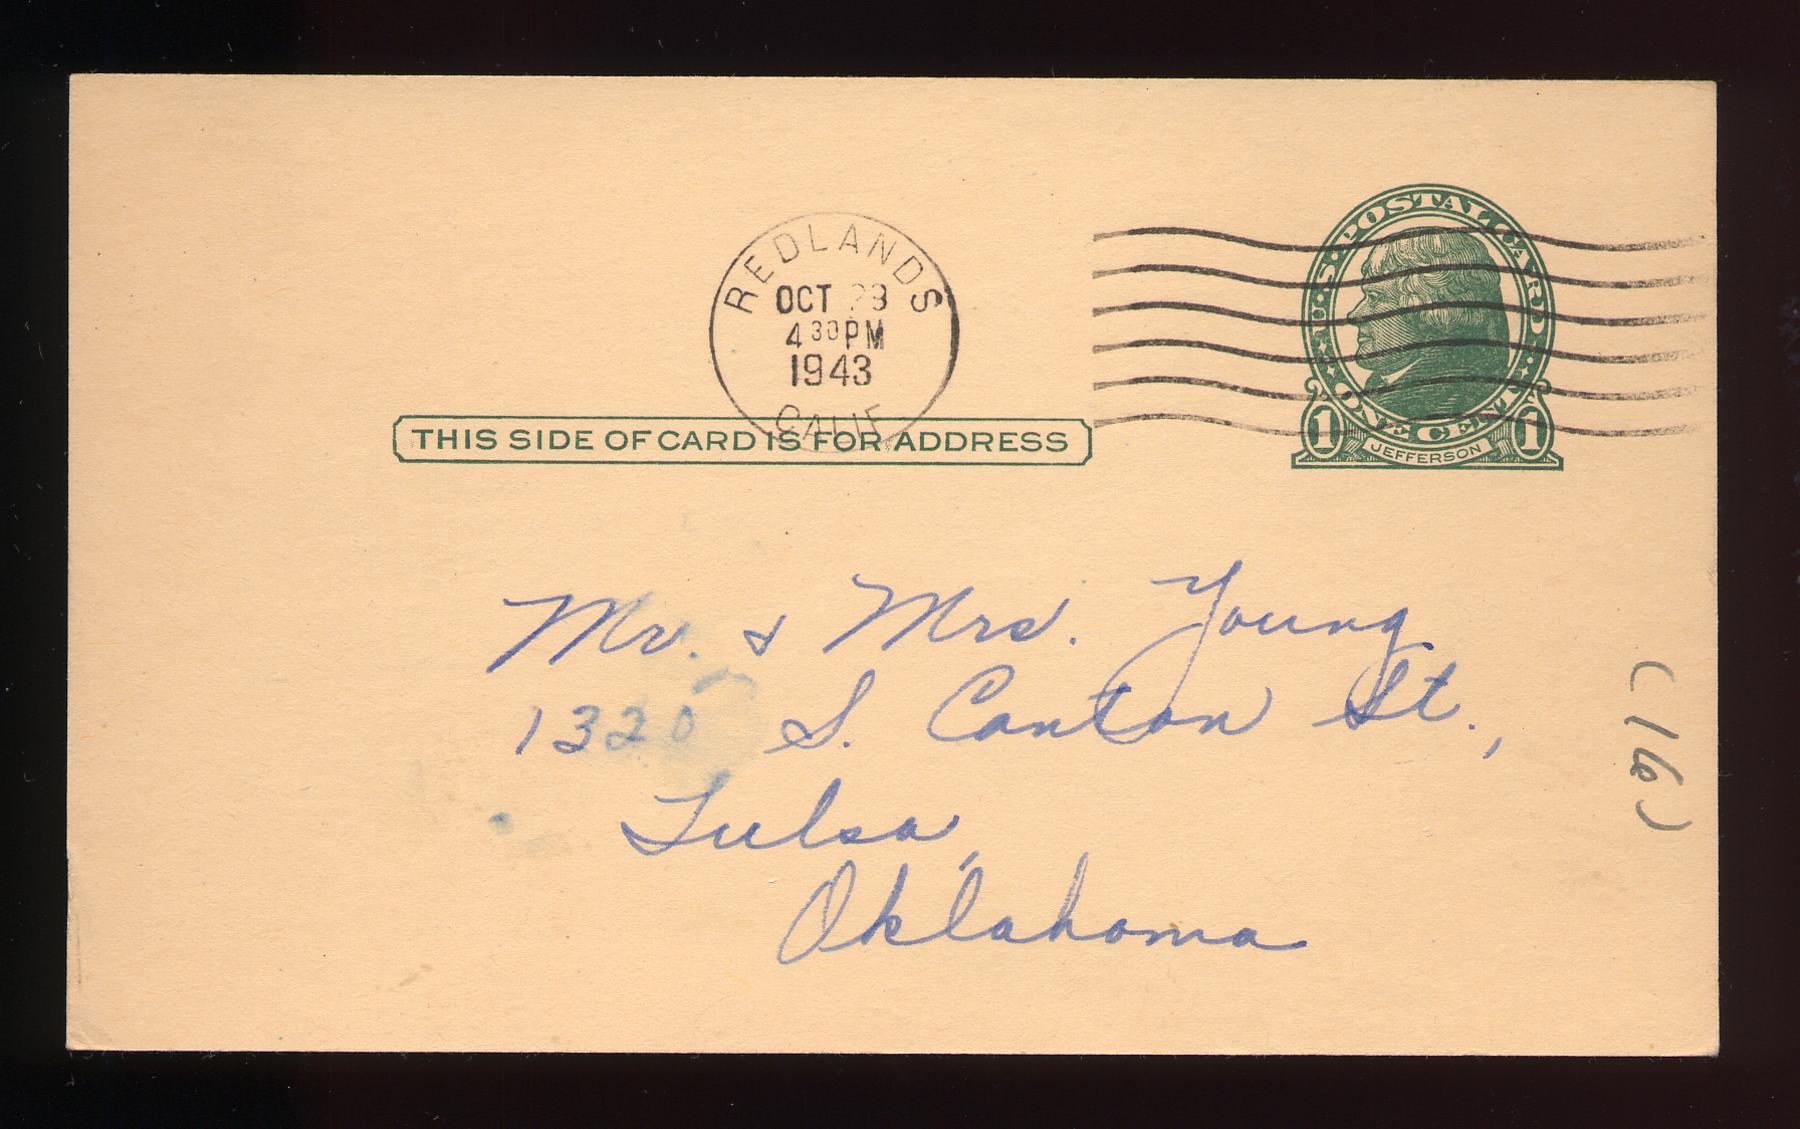 REDLANDS
OCT 23
4 30 PM
1943
CALIF
U.S. POSTAL CARD
ONE CENT
1 JEFFERSON 1
THIS SIDE OF CARD IS FOR ADDRESS
Mr. & Mrs. Young
1320 S. Canton St.,
Tulsa,
Oklahoma
(16)